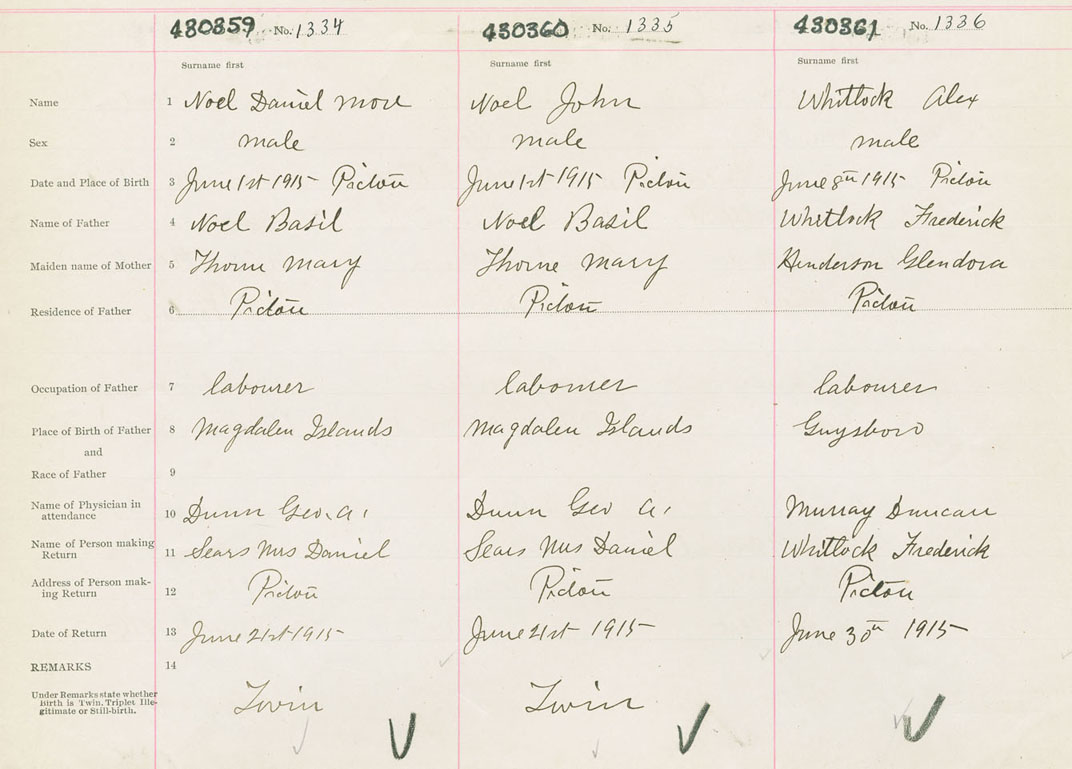 430359 No. 1334 430360 No. 1335 430361 No. 1336
Surname first Surname first Surname first
Name 1 Noel Daniel Noel John Whitlock Alex
Sex 2 male male male
Date and Place of Birth 3 June 1st 1915 Pictou June 1st 1915 Pictou June 8th 1915 Pictou
Name of Father 4 Noel Basil Noel Basil Whitlock Frederick
Maiden name of Mother 5 Thorne Mary Thorne Mary Henderson Glendora
Residence of Father 6 Pictou Pictou Pictou
Occupation of Father 7 labourer labourer labourer
Place of Birth of Father 8 Magdalen Islands Magdalen Islands Guysboro
and
Race of Father 9
Name of Physician in
attendance 10 Dunn Geo. A. Dunn Geo A. Murray Duncan
Name of Person making
Return 11 Sears Mrs Daniel Sears Mrs Daniel Whitlock Frederick
Address of Person mak-
ing Return 12 Pictou Pictou Pictou
Date of Return 13 June 21st 1915 June 21st 1915 June 30th 1915
REMARKS 14
Under Remarks state whether
Birth is Twin. Triplet Ille-
gitimate or Still-birth.
Twin Twin